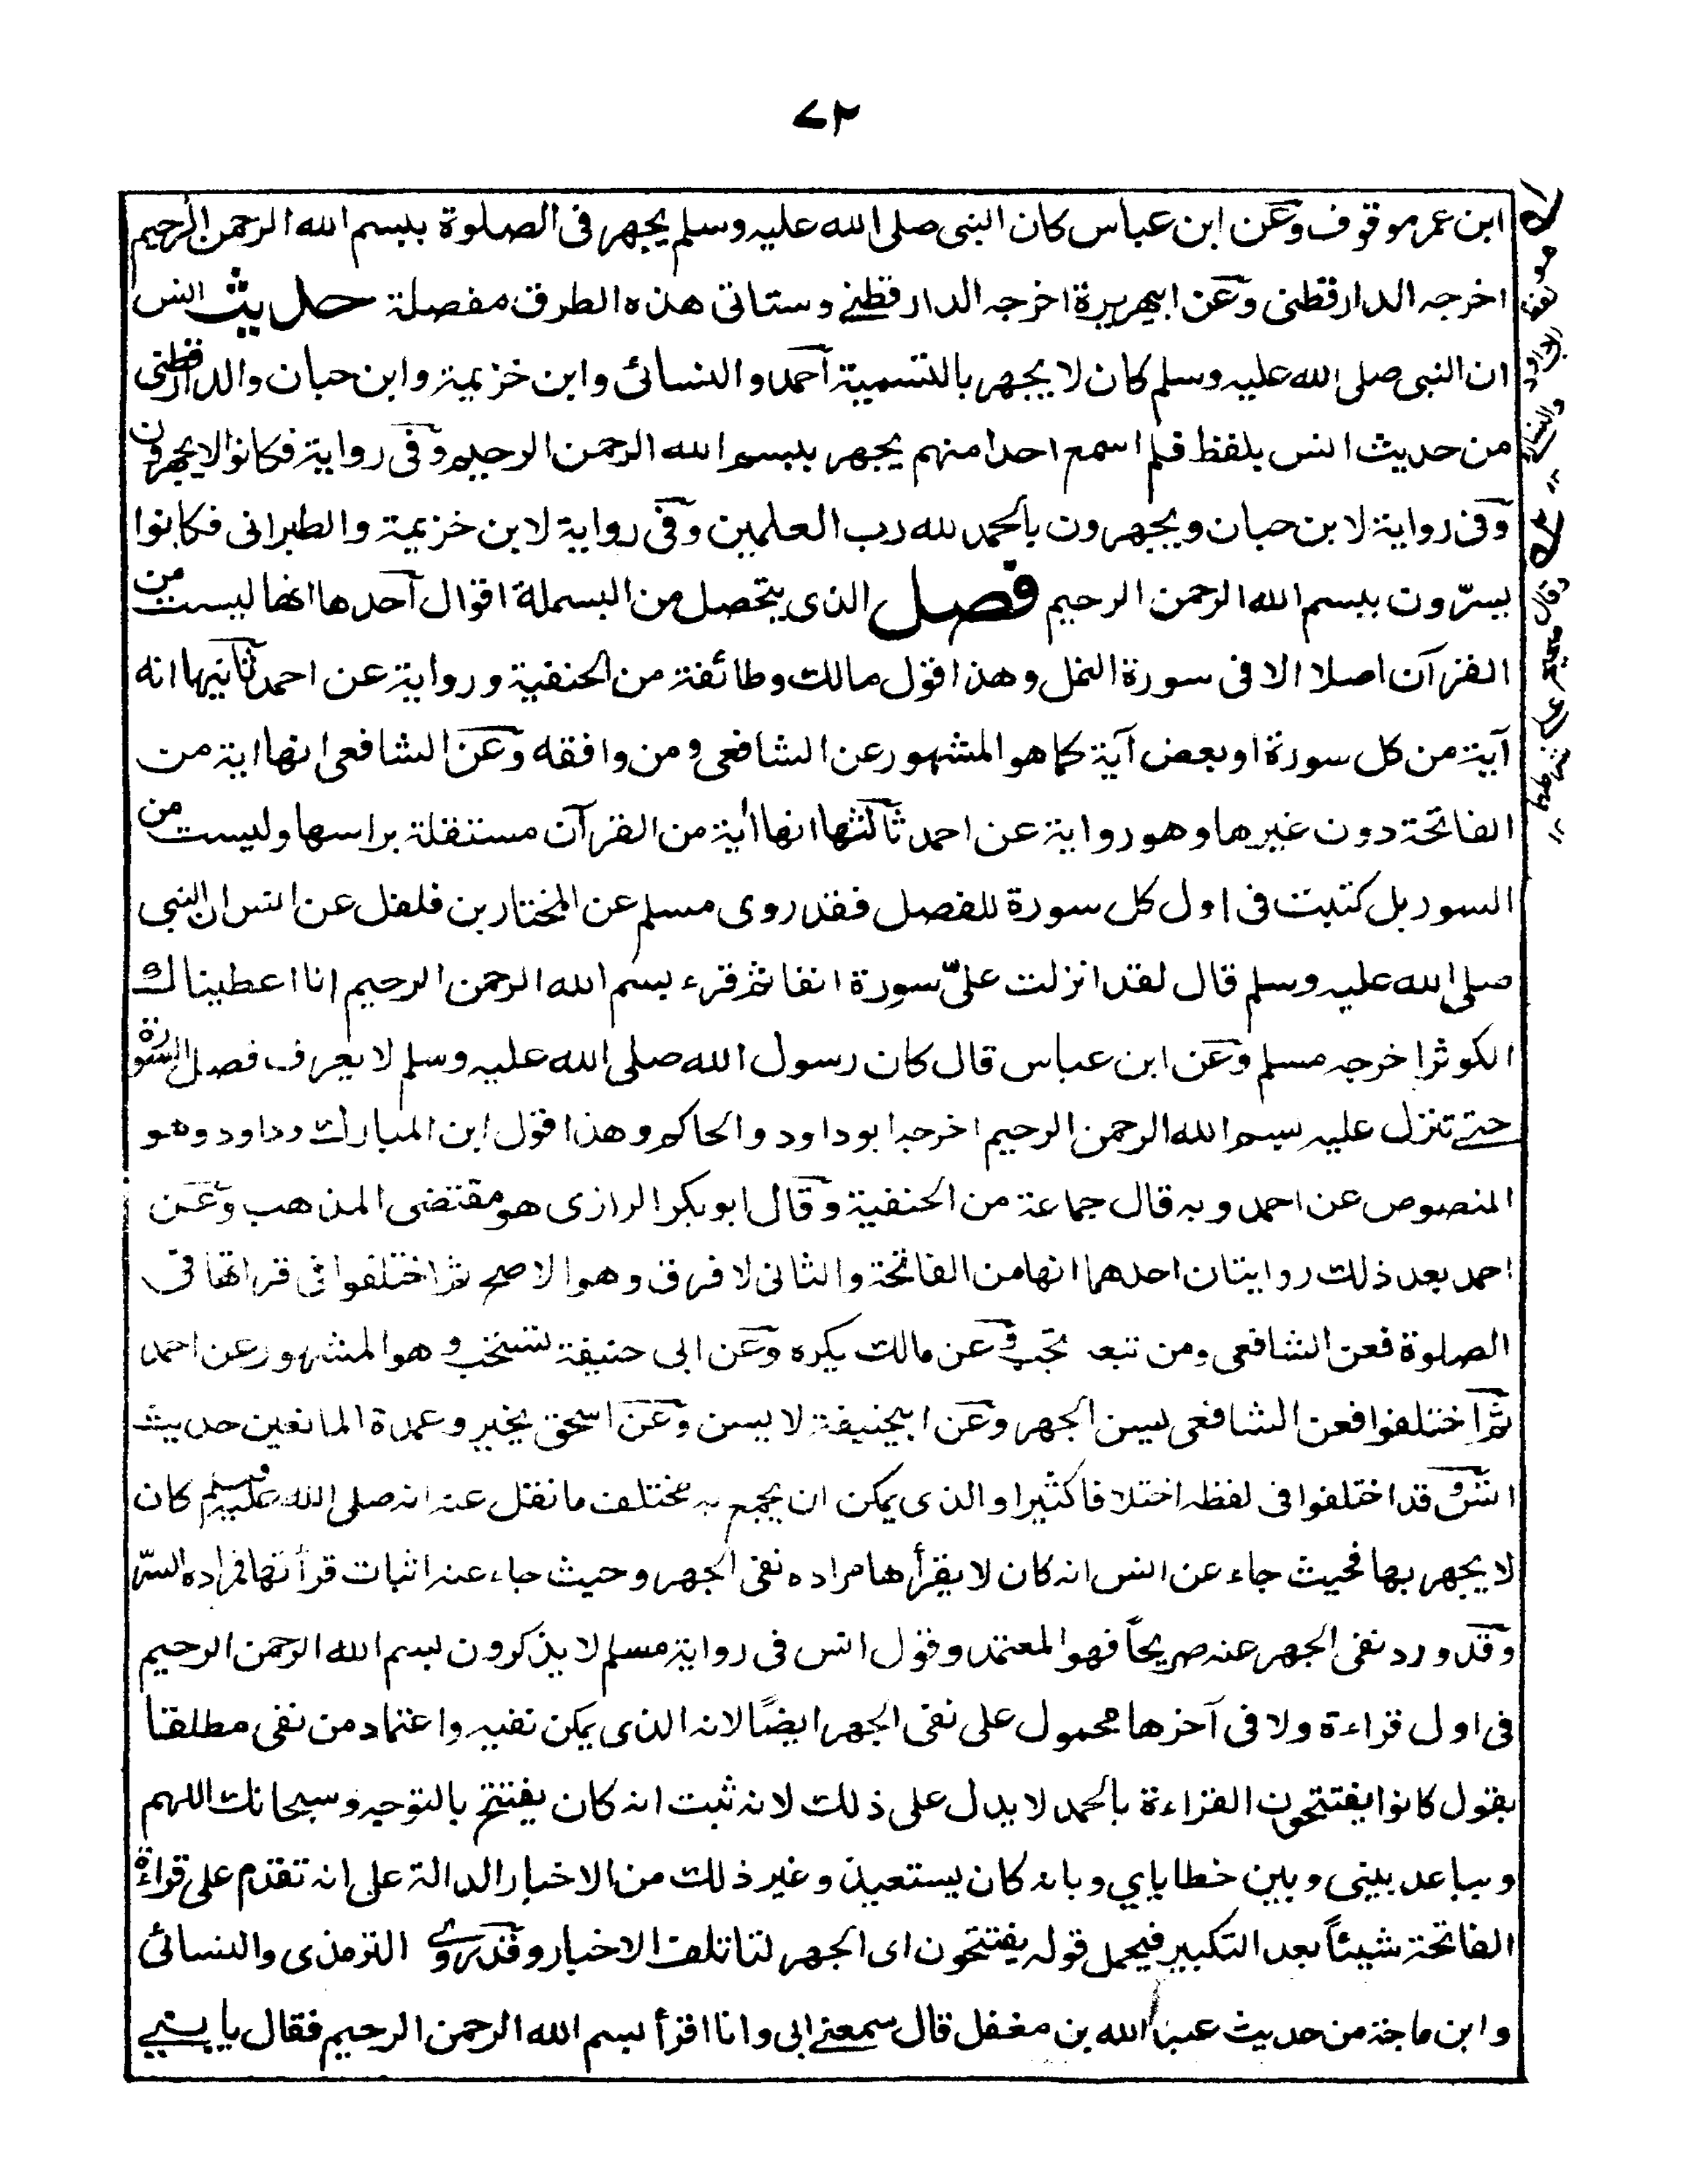 ٧٢
ابن عمر موقوف وعن ابن عباس كان النبى صلى الله عليه وسلم يجهر فى الصلوة ببسم الله الرحمن الرحيم
اخرجه الدارقطنى وعن ابيهريرة اخرجه الدارقطنے وستاتى هذه الطرق مفصلة حديث انس
ان النبى صلى الله عليه وسلم كان لا يجهر بالتسمية احمد والنسائى وابن خزيمة وابن حبان والدارقطنى
من حديث انس بلفظ فلم اسمع احدا منهم يجهر ببسم الله الرحمن الرحيم وفى رواية فكانوا لا يجهرون
وفى رواية لابن حبان ويجهرون بالحمد لله رب العلمين وفى رواية لابن خزيمة والطبرانى فكانوا
يسرّون ببسم الله الرحمن الرحيم فصل الذى يتحصل من البسملة اقوال احدها انها ليست من
القرآن اصلا الا فى سورة النمل وهذا قول مالك وطائفة من الحنفية ورواية عن احمد ثانيها انه
آية من كل سورة او بعض آية كما هو المشهور عن الشافعى ومن وافقه وعن الشافعى انها اية من
الفاتحة دون غيرها وهو رواية عن احمد ثالثها انها اية من القرآن مستقلة براسها وليست من
السور بل كتبت فى اول كل سورة للفصل فقد روى مسلم عن المختار بن فلفل عن انس ان النبى
صلى الله عليه وسلم قال لقد انزلت علىّ سورة انفا ثم قرء بسم الله الرحمن الرحيم انا اعطيناك
الكوثر اخرجه مسلم وعن ابن عباس قال كان رسول الله صلى الله عليه وسلم لا يعرف فصل السورة
حتے تنزل عليه بسم الله الرحمن الرحيم اخرجه ابوداود والحاكم وهذا قول ابن المبارك وداود وهو
المنصوص عن احمد وبه قال جماعة من الحنفية وقال ابوبكر الرازى هو مقتضى المذهب وعن
احمد بعد ذلك روايتان احدهما انها من الفاتحة والثانى لا فرق وهو الاصح ثم اختلفوا فى قراتها فى
الصلوة فعن الشافعى ومن تبعه تجب وعن مالك يكره وعن ابى حنيفة تستحب وهو المشهور عن احمد
ثم اختلفوا فعن الشافعى يسن الجهر وعن ابيحنيفة لا يسن وعن اسحق يخير وعمدة المانعين حديث
انس وقد اختلفوا فى لفظه اختلافا كثيرا والذى يمكن ان يجمع به مختلف ما نقل عنه انه صلى الله عليه وسلم كان
لا يجهر بها فحيث جاء عن انس انه كان لا يقرأها مراده نفى الجهر وحيث جاء عنه اثبات قرأتها فمراده السرّ
وقد ورد نفى الجهر عنه صريحاً فهو المعتمد وقول انس فى رواية مسلم لا يذكرون بسم الله الرحمن الرحيم
فى اول قراءة ولا فى آخرها محمول على نفى الجهر ايضًا لانه الذى يمكن نفيه واعتماد من نفى مطلقا
بقول كانوا يفتتحون القراءة بالحمد لا يدل على ذلك لانه ثبت انه كان يفتتح بالتوجيه وسبحانك اللهم
وبباعد بينى وبين خطاياي وبانه كان يستعيذ وغير ذلك من الاخبار الدالة على انه تقدم على قراءة
الفاتحة شيئاً بعد التكبير فيحمل قوله يفتتحون اى الجهر لتاتلف الاخبار وقد روے الترمذى والنسائى
وابن ماجة من حديث عبد الله بن مغفل قال سمعنے ابى وانا اقرأ بسم الله الرحمن الرحيم فقال يا بنے